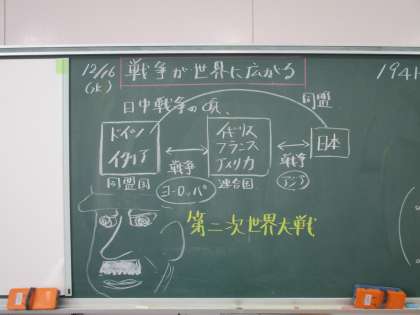 12/16
戦争が世界に広がる
194
同盟
日中戦争の頃、
ドイツ
イタリア
同盟国
戦争
ヨーロッパ
イギリス
フランス
アメリカ
連合国
戦争
アジア
日本
第二次世界大戦